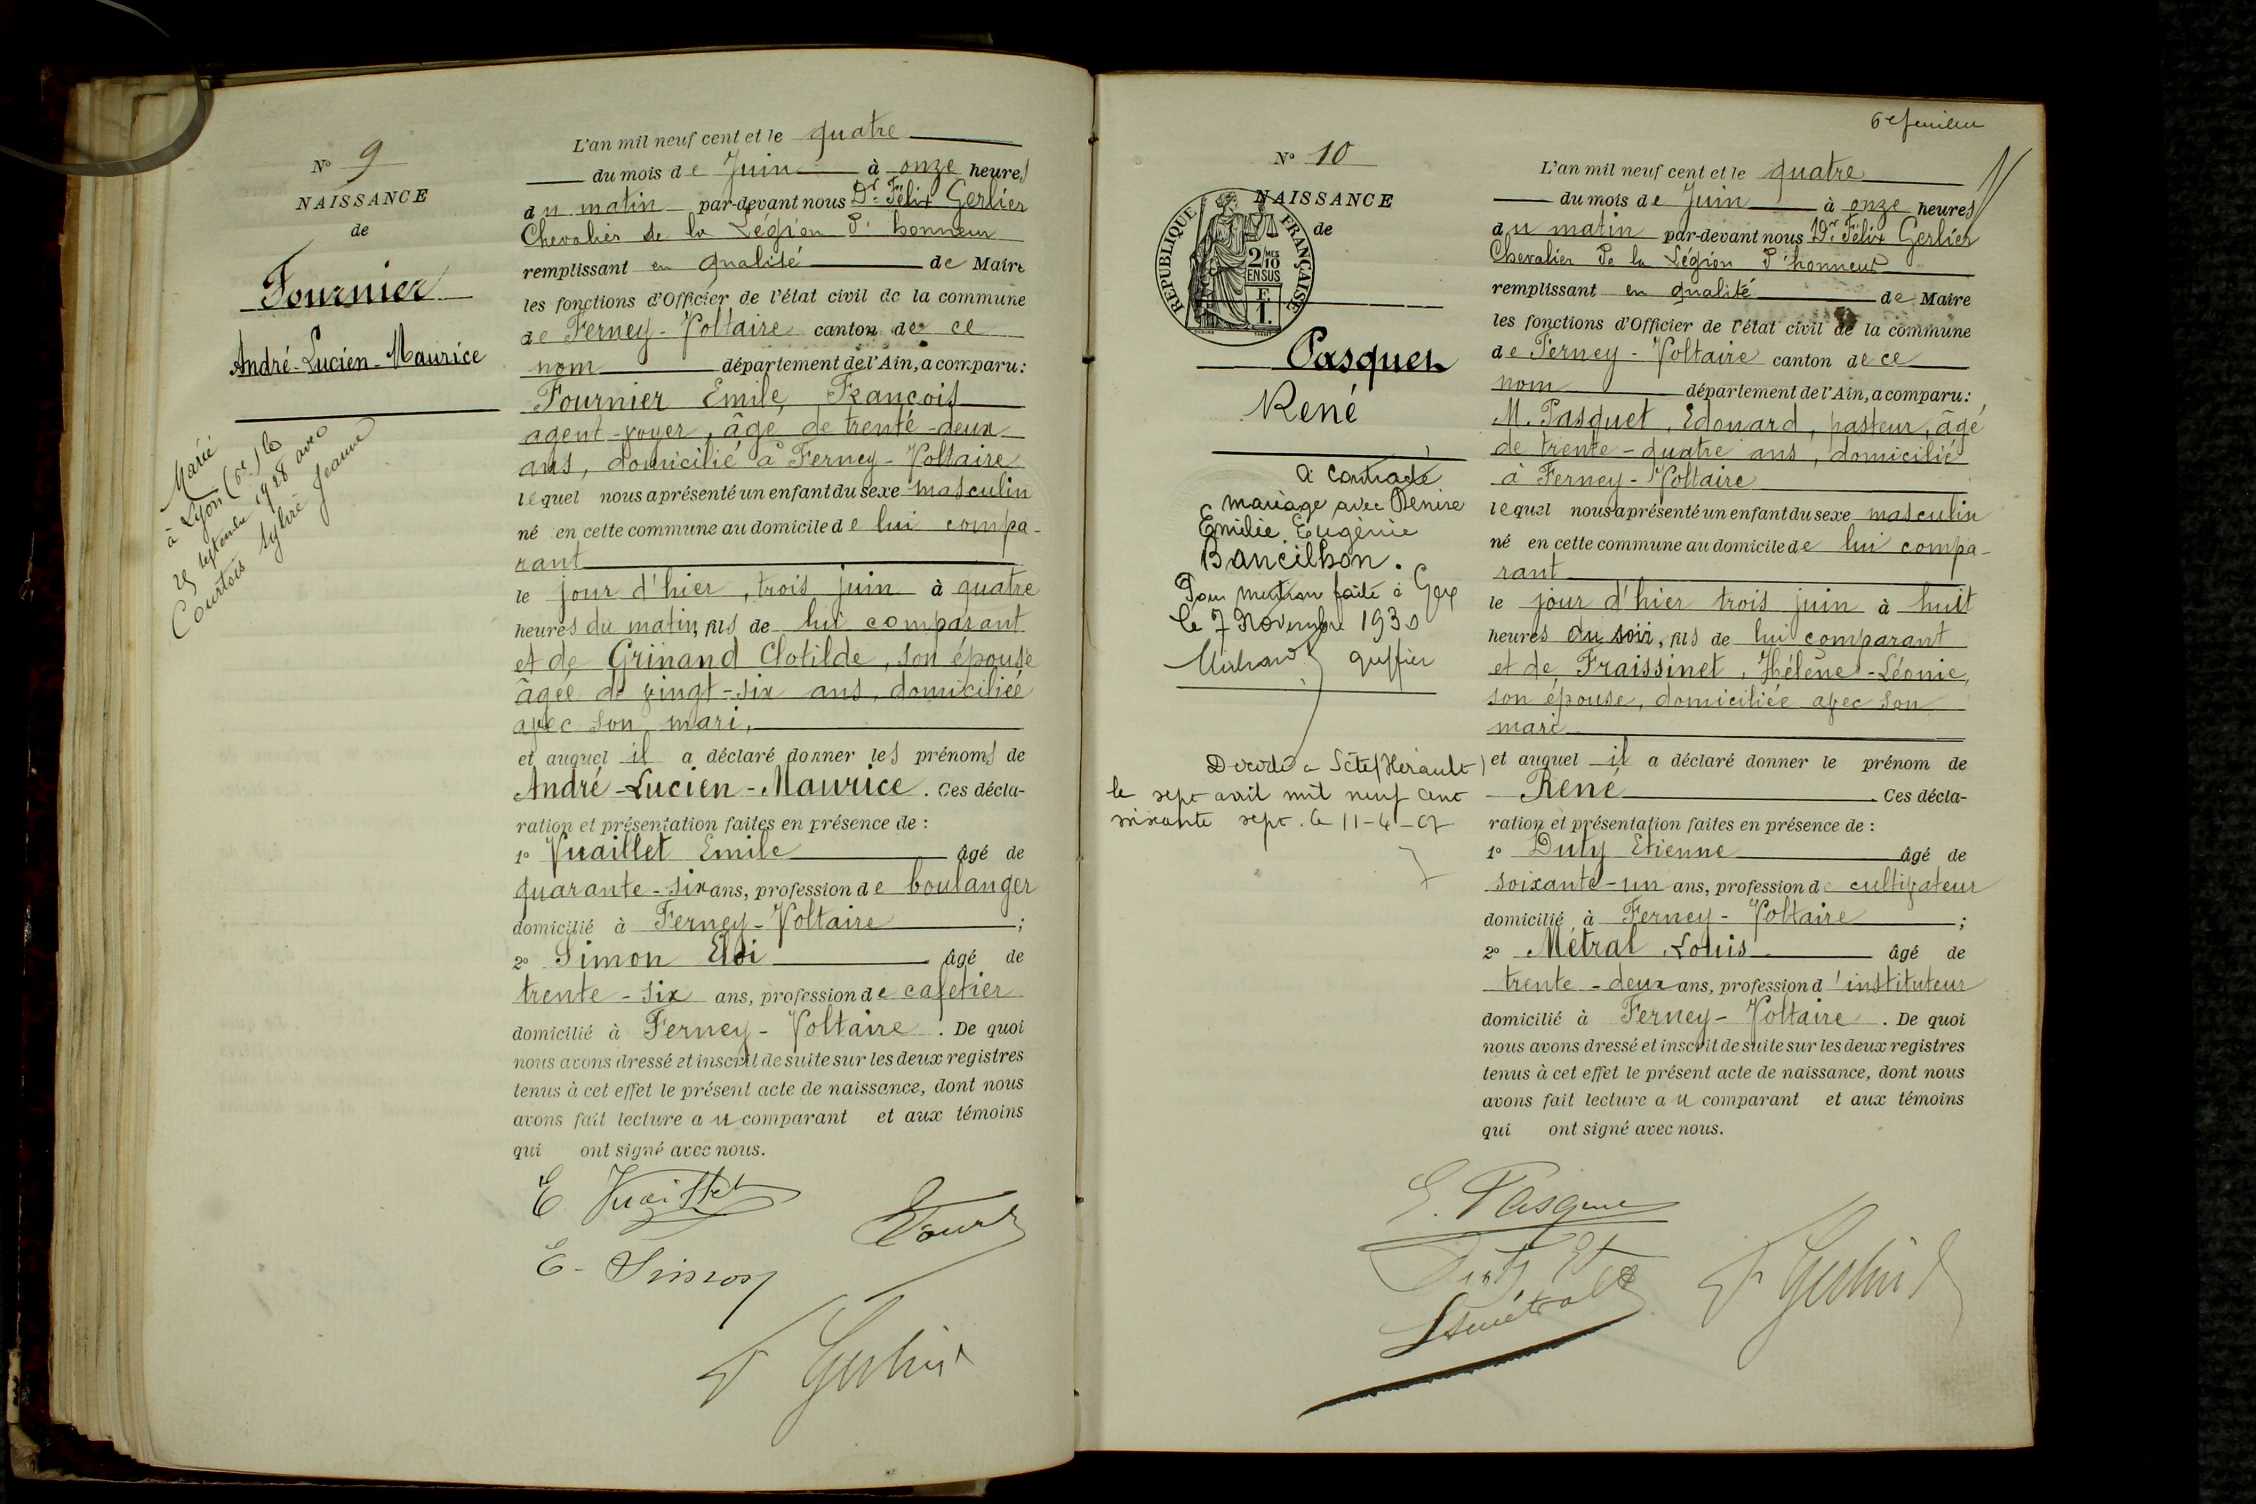 N° 9
NAISSANCE
de
Fournier
André-Lucien-Maurice
Marié
à Lyon
25 septembre 1928 avec
Courtois Sylvie Jeanne
L'an mil neuf cent et le quatre
du mois de Juin à onze heures
du matin par-devant nous Dr Félix Gerlier
Chevalier de la Légion d'honneur
remplissant en qualité de Maire
les fonctions d'Officier de l'état civil de la commune
de Ferney-Voltaire canton de ce
nom département de l'Ain, a comparu:
Fournier Emile, François
agent-voyer, âgé de trente-deux
ans, domicilié à Ferney-Voltaire
lequel nous a présenté un enfant du sexe masculin
né en cette commune au domicile de lui compa-
rant
le jour d'hier, trois juin à quatre
heures du matin, fils de lui comparant
et de Grinand Clotilde, son épouse
âgée de vingt-six ans, domiciliée
avec son mari,
et auquel il a déclaré donner les prénoms de
André-Lucien-Maurice. Ces décla-
ration et présentation faites en présence de :
1° Vuaillet Emile âgé de
quarante-six ans, profession de boulanger
domicilié à Ferney-Voltaire ;
2° Simon Eloi âgé de
trente-six ans, profession de cafetier
domicilié à Ferney-Voltaire. De quoi
nous avons dressé et inscrit de suite sur les deux registres
tenus à cet effet le présent acte de naissance, dont nous
avons fait lecture au comparant et aux témoins
qui ont signé avec nous.
E Vuaillet
E. Simon
F Gerlier
6e feuillet
N° 10
NAISSANCE
de
RÉPUBLIQUE FRANÇAISE
2/10 MES
EN SUS
F.
1.
Pasquet
René
a contracté
mariage avec Denise
Emilie, Eugénie
Bancilhon.
Pour mention faite à Gex
le 7 Novembre 1930
greffier
Décédé à Sète (Hérault)
le sept avril mil neuf cent
soixante sept. le 11-4-67
L'an mil neuf cent et le quatre
du mois de Juin à onze heures
du matin par-devant nous Dr Félix Gerlier
Chevalier de la Légion d'honneur
remplissant en qualité de Maire
les fonctions d'Officier de l'état civil de la commune
de Ferney-Voltaire canton de ce
nom département de l'Ain, a comparu:
M. Pasquet, Edouard, pasteur, âgé
de trente-quatre ans, domicilié
à Ferney-Voltaire
lequel nous a présenté un enfant du sexe masculin
né en cette commune au domicile de lui compa-
rant
le jour d'hier trois juin à huit
heures du soir, fils de lui comparant
et de Fraissinet, Hélène-Léonie,
son épouse, domiciliée avec son
mari
et auquel il a déclaré donner le prénom de
René. Ces décla-
ration et présentation faites en présence de :
1° Duty Etienne âgé de
soixante-un ans, profession de cultivateur
domicilié à Ferney-Voltaire ;
2° Métral Louis âgé de
trente-deux ans, profession d'instituteur
domicilié à Ferney-Voltaire. De quoi
nous avons dressé et inscrit de suite sur les deux registres
tenus à cet effet le présent acte de naissance, dont nous
avons fait lecture au comparant et aux témoins
qui ont signé avec nous.
E. Pasquet
Duty Et
L Métral
F Gerlier